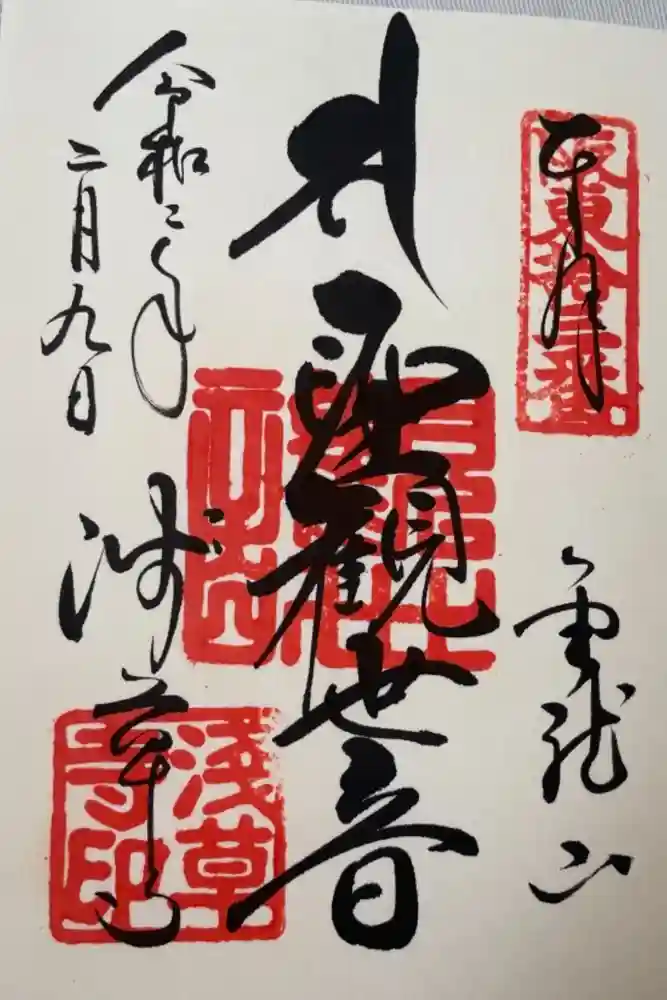 奉拝
坂東拾三番
金龍山
聖観世音
令和二年
二月九日
浅草寺
浅草寺印